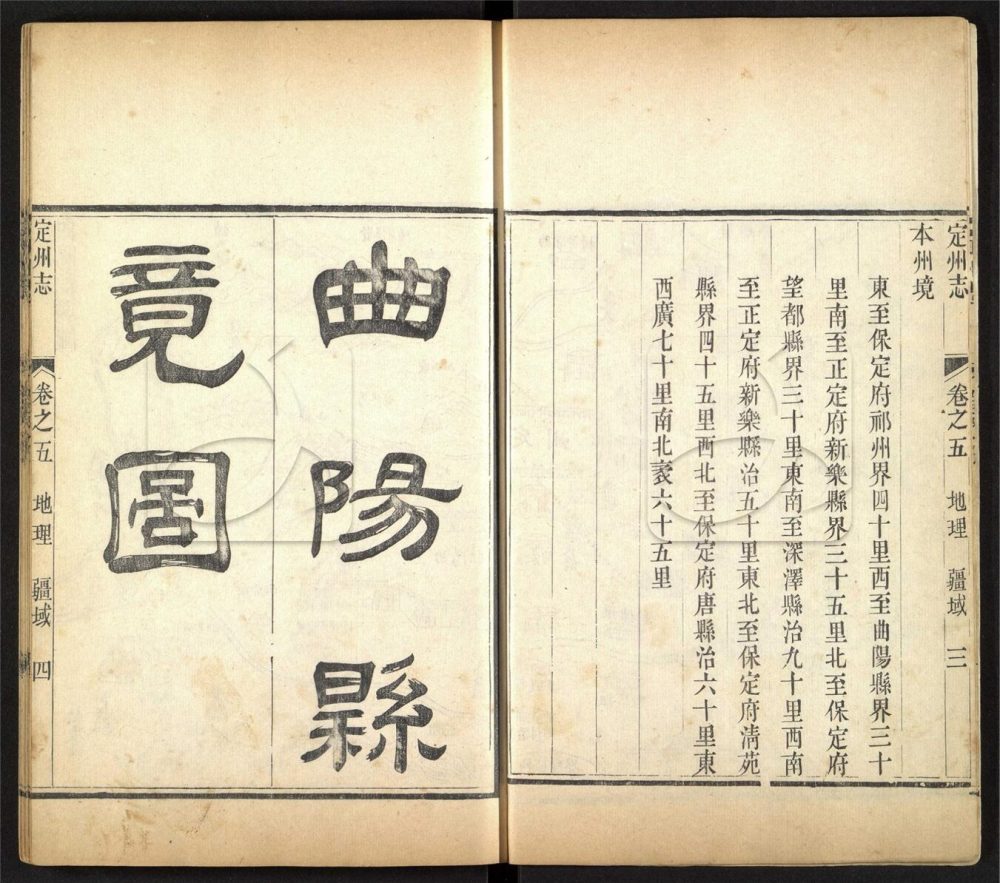 定州志 卷之五 地理 疆域 三
本州境
東至保定府祁州界四十里西至曲陽縣界三十
里南至正定府新樂縣界三十五里北至保定府
望都縣界三十里東南至深澤縣治九十里西南
至正定府新樂縣治五十里東北至保定府清苑
縣界四十五里西北至保定府唐縣治六十里東
西廣七十里南北袤六十五里
曲陽縣
竟圖
定州志 卷之五 地理 疆域 四